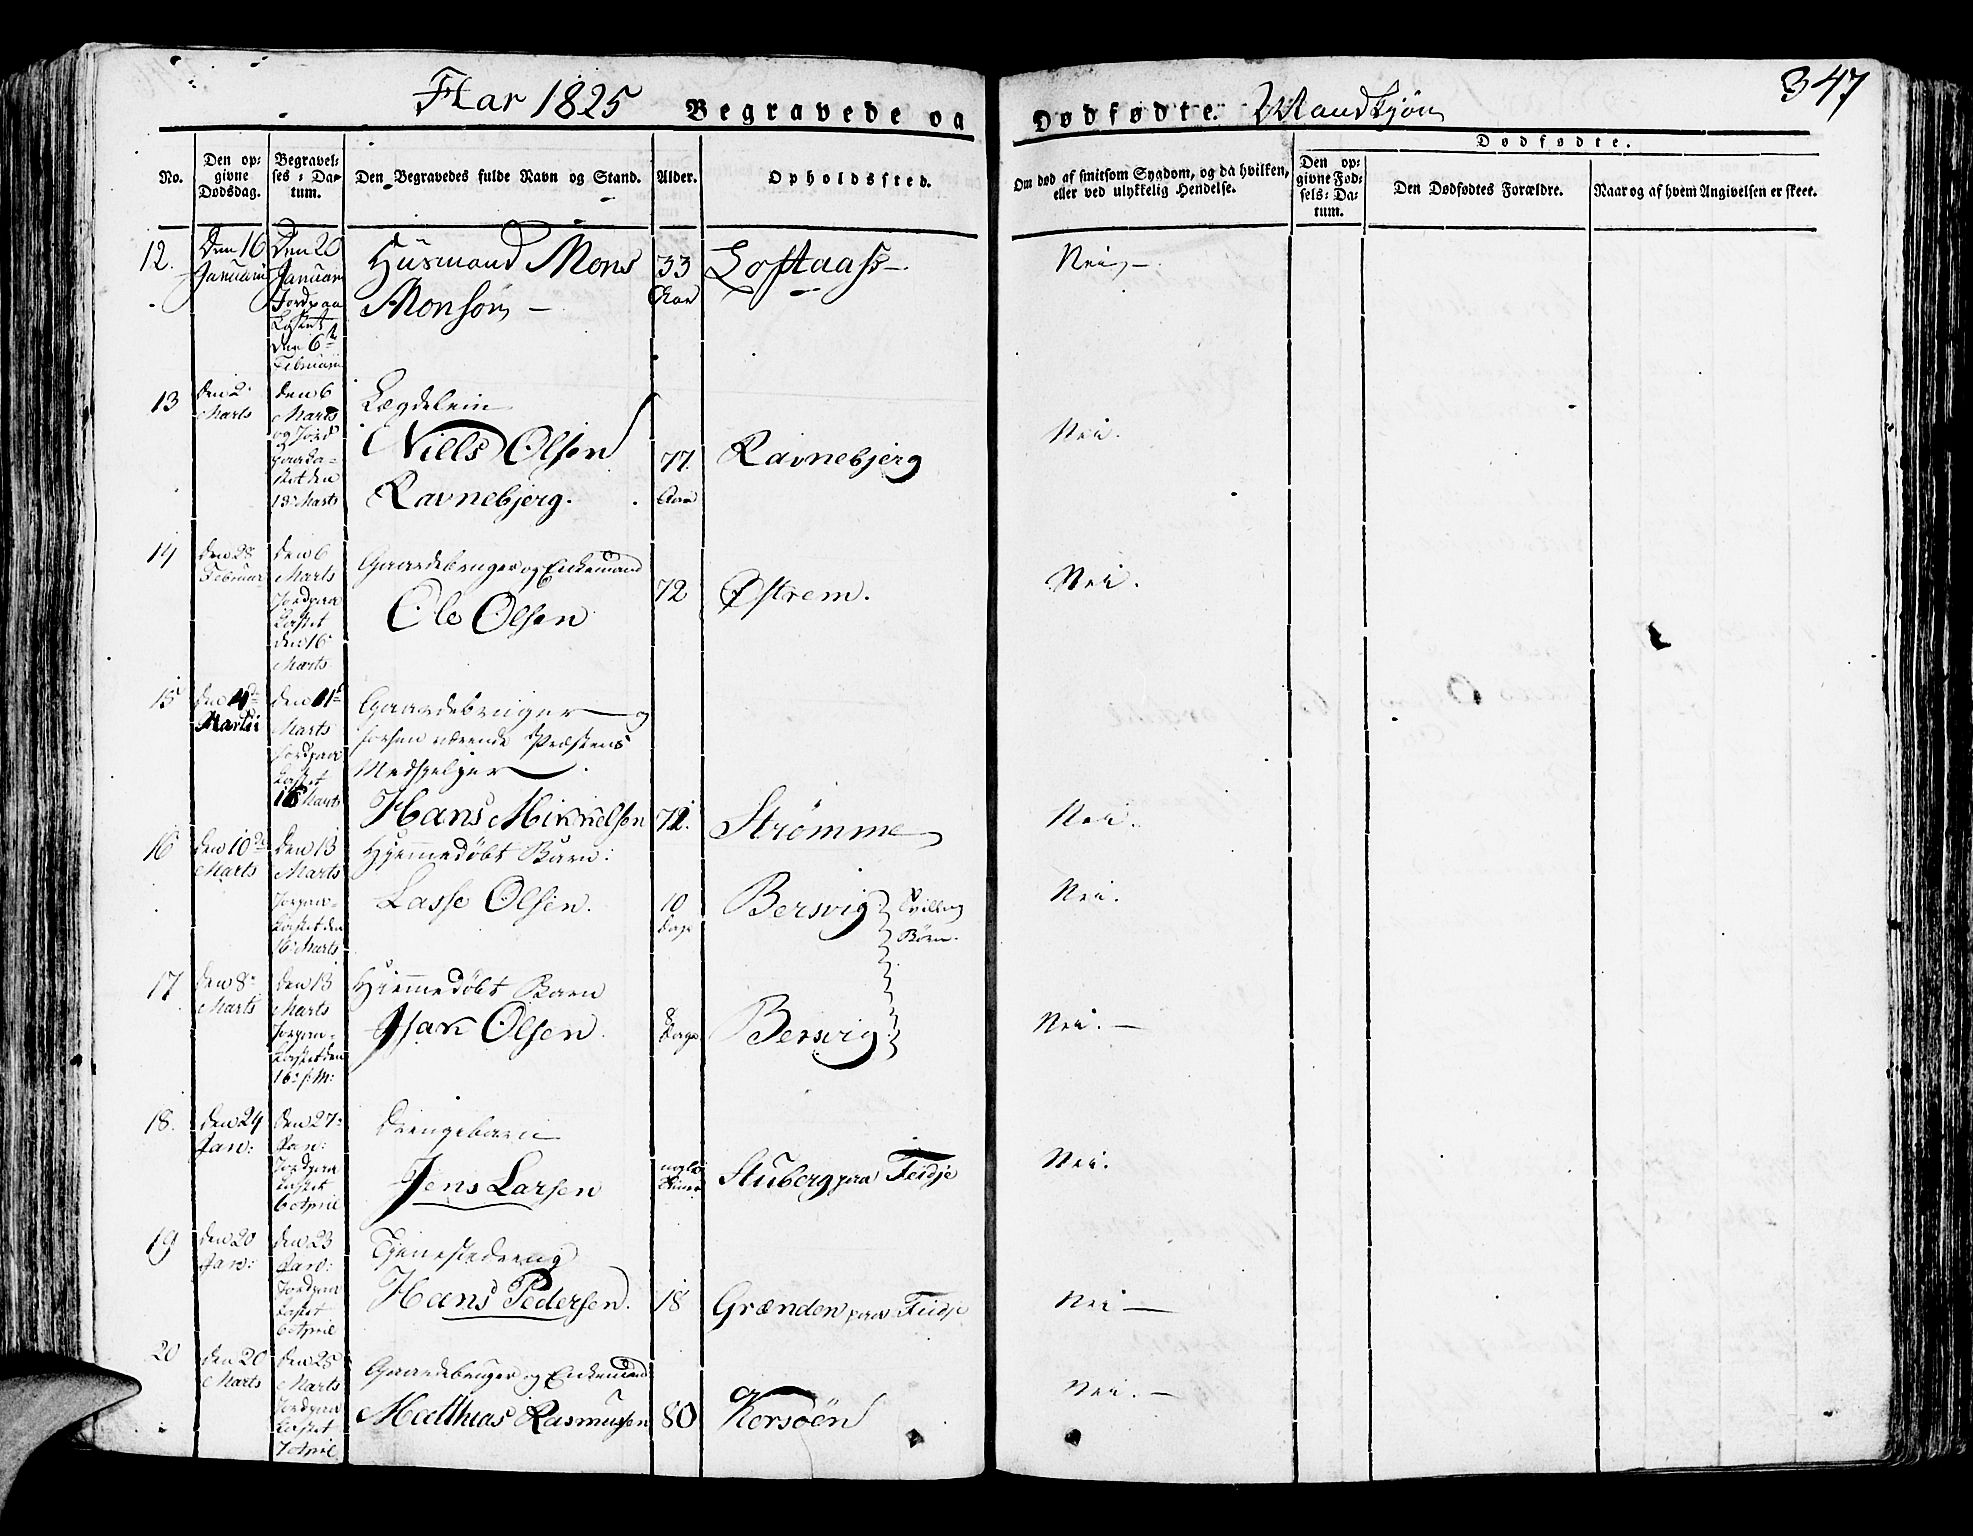 Aar 1825 Begravede og Dødfødte. Mandkjøn 347
No.
Den opgivne Dødsdag.
Begravelses-Datum.
Den Begravedes fulde Navn og Stand.
Alder.
Opholdssted.
Om død af smitsom Sygdom, og da hvilken, eller ved ulykkelig Hendelse.
Dødfødte.
Den opgivne Fødsels-Datum.
Den Dødfødtes Forældre.
Naar og af hvem Angivelsen er skeet.
12. Den 16 Januarii
Den 20 Januarii Jordpaakastet den 6te Februarii
Huusmand Mons Monsøn
33 Aar
Loftaas
Nei,
13 den 2 Marts
den 6 Marts og Jord paakastet den 13 Marts
Lægdslem
Niels Olsen
Ravnebjerg.
77. Aar
Ravnebjerg
Nei.
14 den 28 Februar
den 6 Marts Jordpaakastet den 16 Marts
Gaardebruger og Enkemand
Ole Olsen
72
Østrem.
Nei.
15 den 4de Martii
den 11te Marts Jordpaakastet 16 Marts
Gaardebruger og
forhen værende Præstens
Medhjelper
Hans Mikkelsen
72.
Strømme
Nei.
16 den 10de Marts
den 13 Marts Jorpaakastet den 16 Marts
Hjemmedøbt Barn:
Lasse Olsen.
10 dage
Bersvig
Tvilling Børn.
Nei.
17 den 8 Marts
den 13 Marts Jorpaakastet den 16 s: M:
Hjemmedøbt Barn
Isak Olsen.
8 dage
Bersvig
Nei.
18. den 24 Jan:
den 27 Jan: Jordpaakastet 6 April
Drengebarn
Jens Larsen
nogle Timer
Stuberg paa Feidje
Nei.
19 den 20 Jan:
den 23 Jan: Jordpaakastet 6 April
Tjenestedreng
Hans Pedersen.
18
Grænden paa Feidje
Nei
20 den 20 Marts
den 25 Marts Jordpaakastet 7 April
Gaardebruger og Enkemand
Matthias Rasmussen
80
Korsøen
Nei.